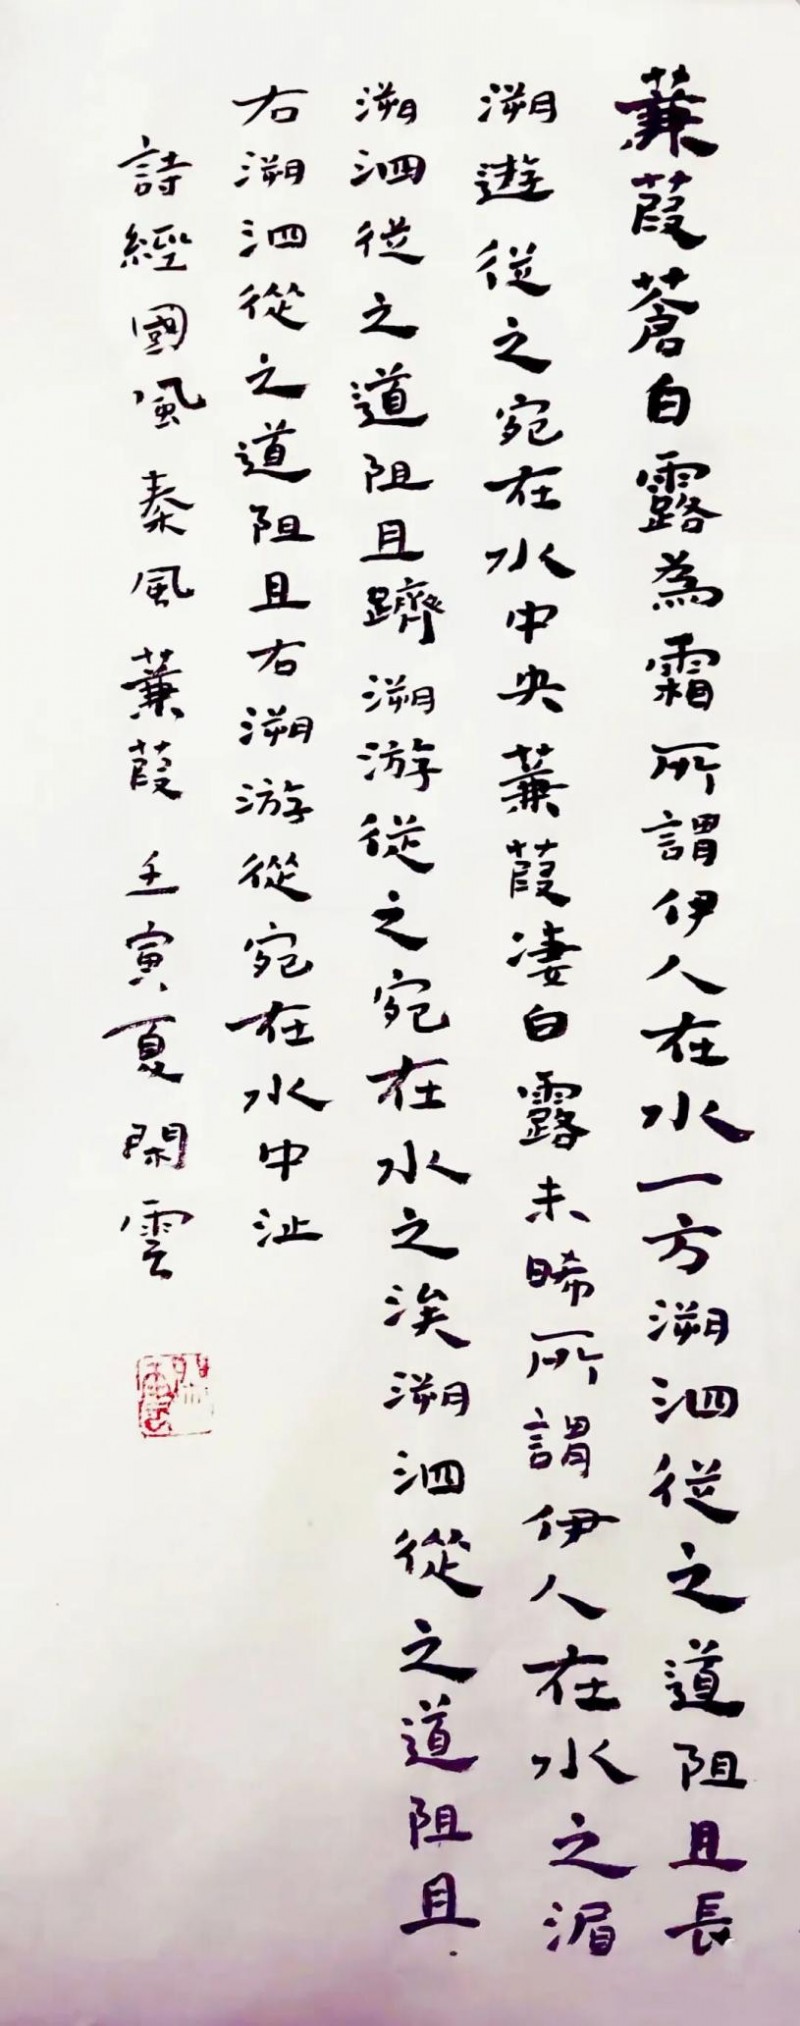 蒹葭蒼白露為霜所謂伊人在水一方溯泗從之道阻且長
溯遊從之宛在水中央蒹葭凄白露未晞所謂伊人在水之湄
溯泗從之道阻且躋溯游從之宛在水之涘溯泗從之道阻且
右溯泗從之道阻且右溯游從宛在水中沚
詩經國風秦風蒹葭壬寅夏閑雲